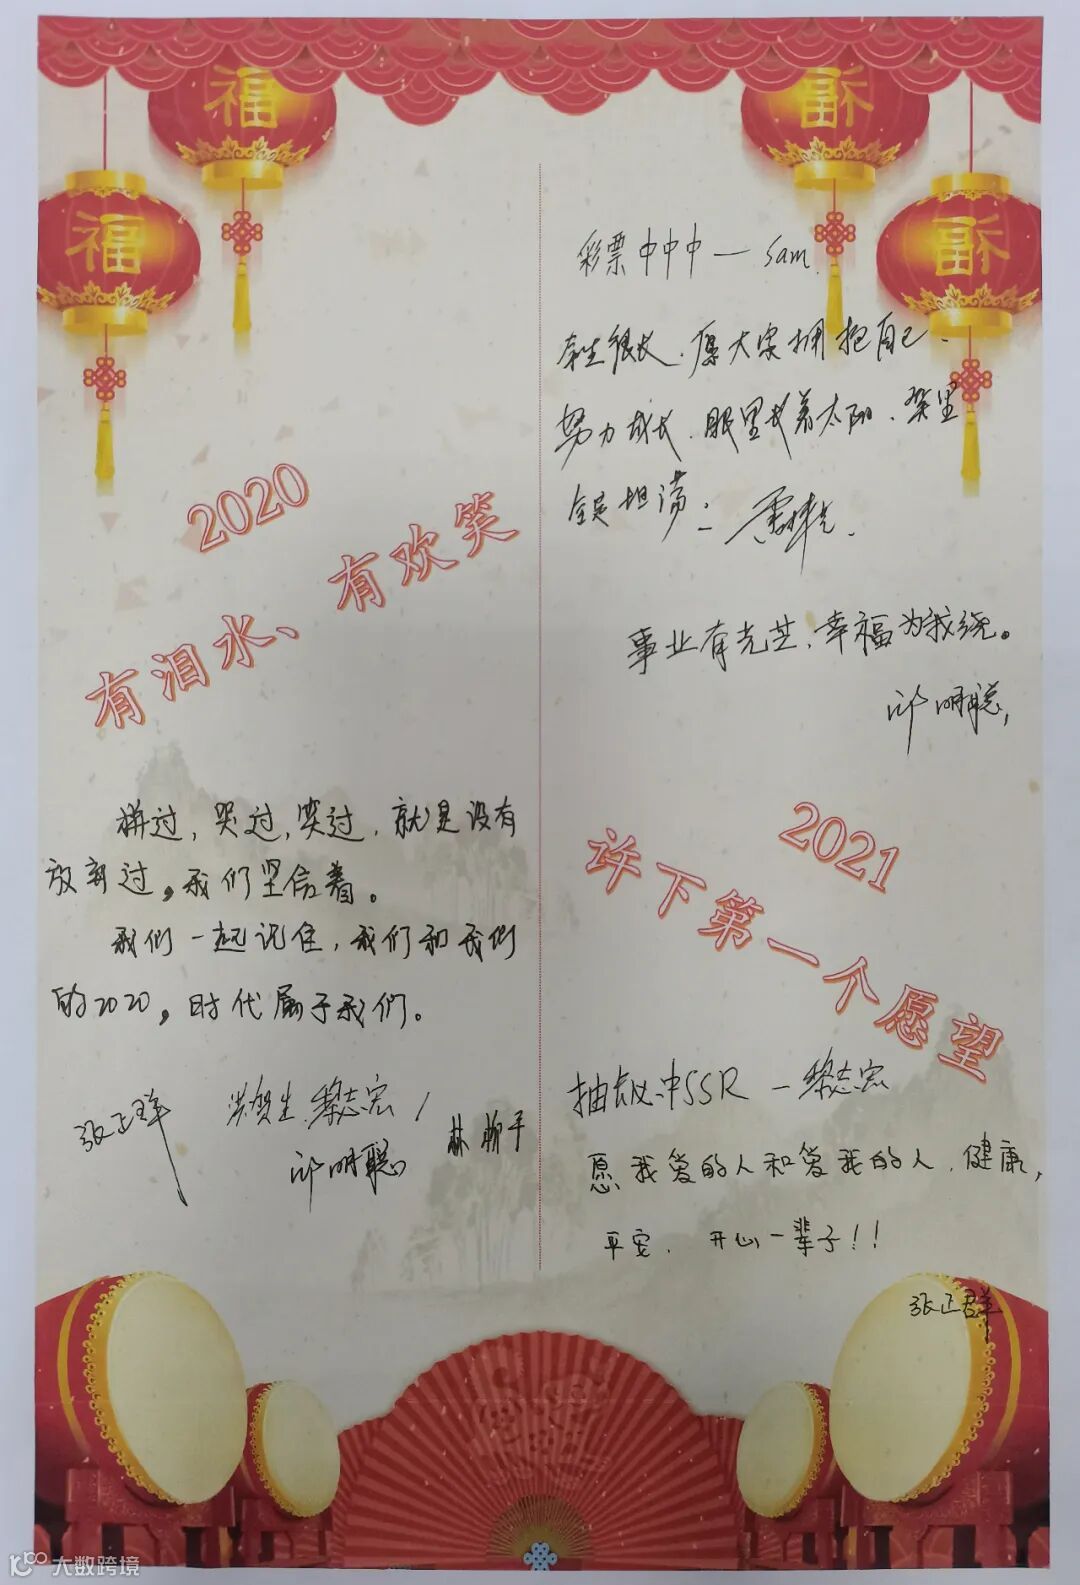 福
福
福
福
2020
有泪水、有欢笑
拼过，哭过，笑过，就是没有
放弃过，我们坚信着。
我们一起记住，我们和我们
的2020，时代属于我们。
张正群
洪贺生 黎志宏
邝明聪
林柳平
彩票中中中 — Sam.
余生很长，愿大家拥抱自己、
努力成长，眼里放着太阳，笑里
全是坦荡；
事业有光芒，幸福为我绕。
邝明聪，
2021
许下第一个愿望
抽卡必中SSR — 黎志宏
愿我爱的人和爱我的人，健康，
平安，开心一辈子！！
张正群
大数跨境